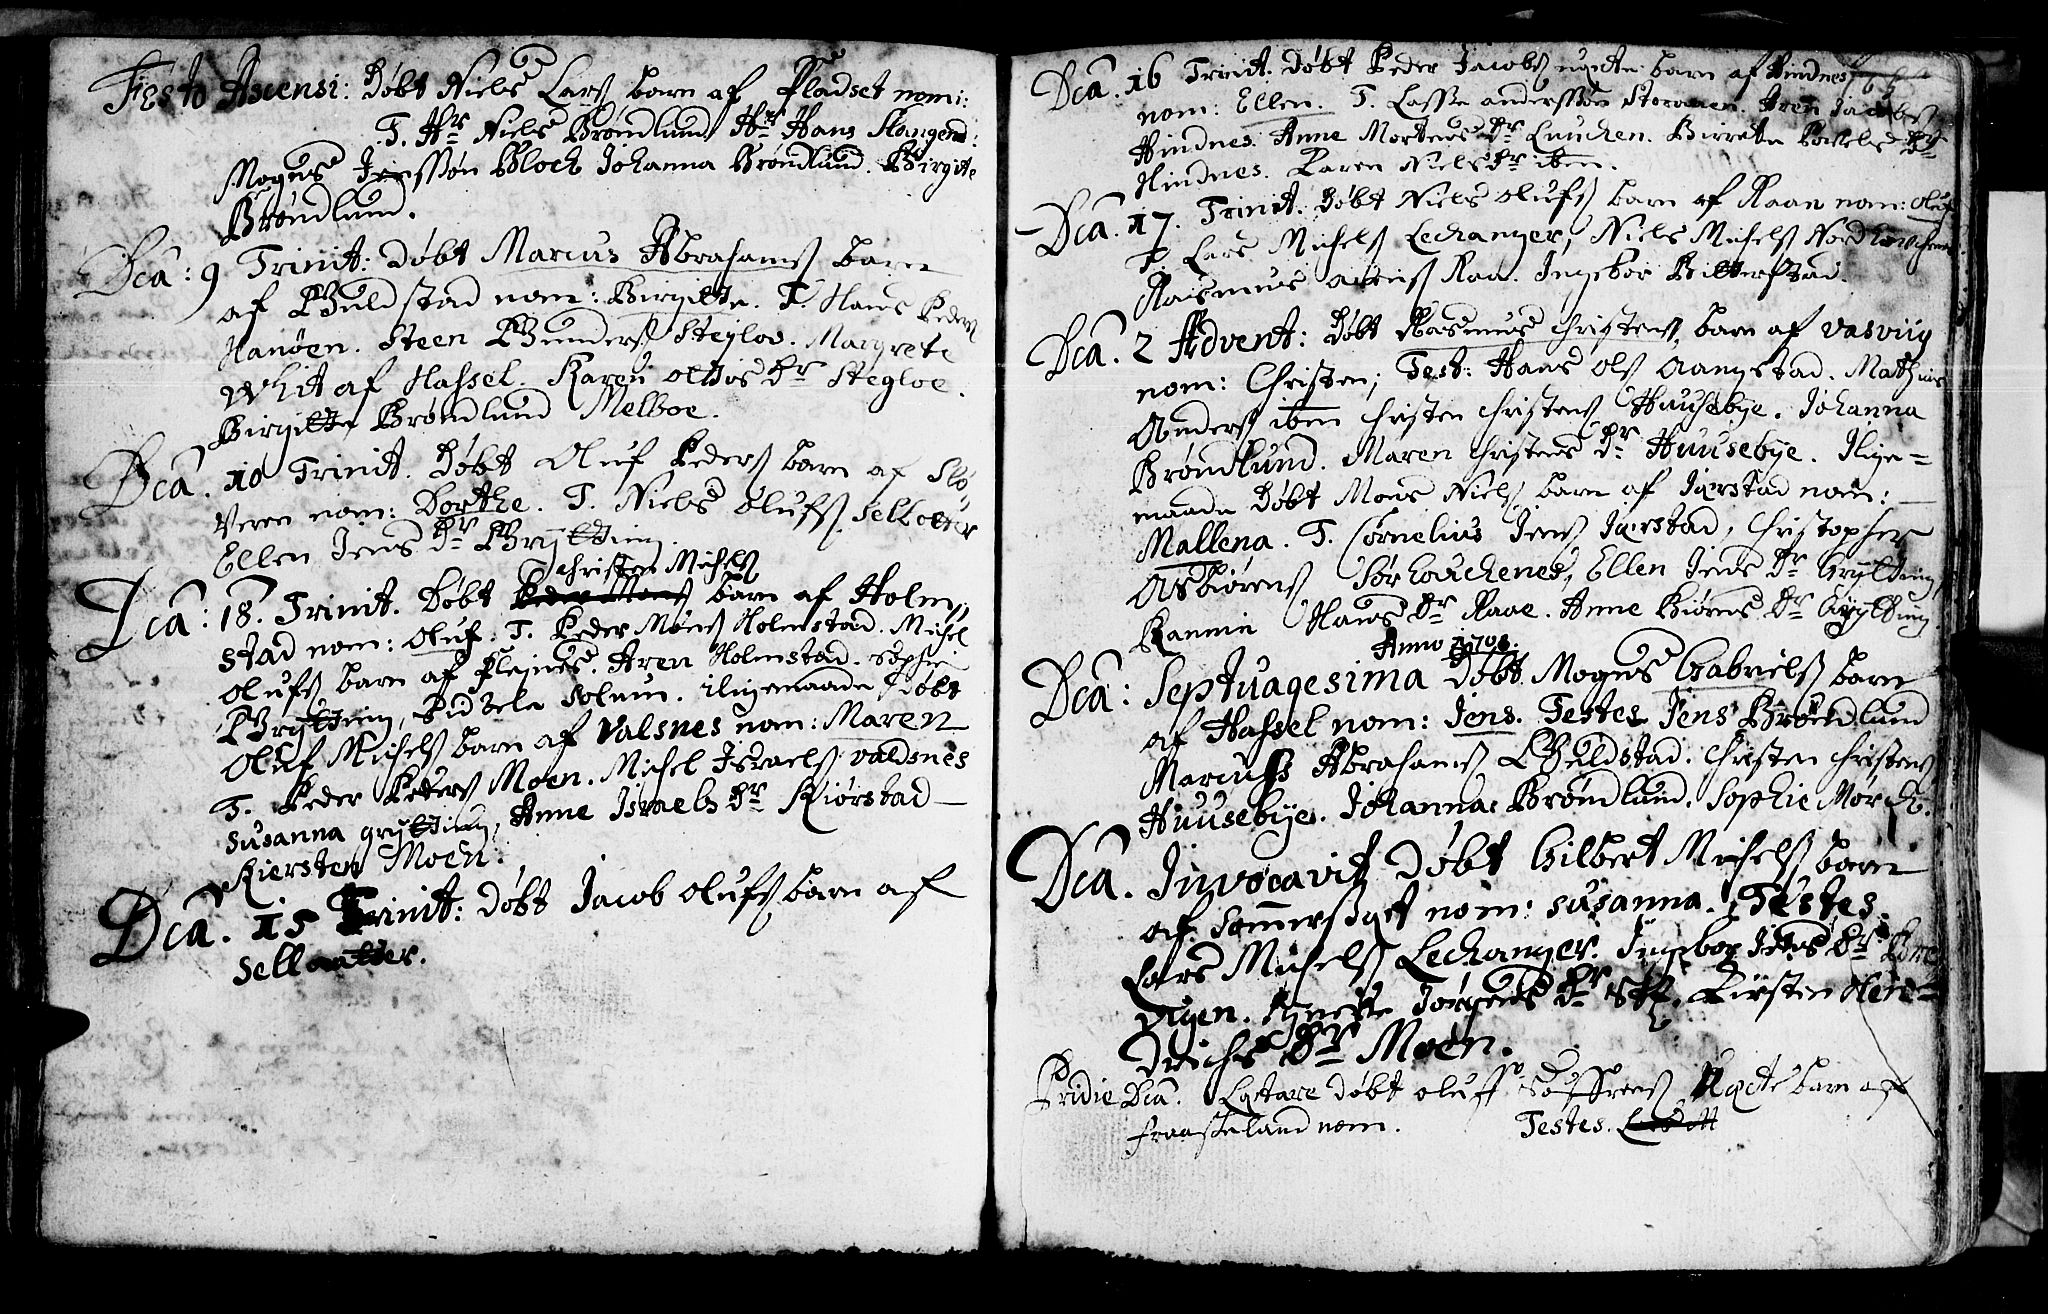 Festo Ascensi: Døbt Niels Larß barn af Pladset nomi:
T. Hr Niels Brøndlund Hr Hans
Mogns Jenssøn Bloch Johanna Brøndlund. Birgite
Brøndlund.
Dca: 9 Trinit: døbt Marcus Abrahamß barn
af Guldstad nom: Birgitte. T. Hans Peders
Hanøen. Steen Gunderß Steylos. Margrete
Whit af Hassel. Karen ottos Dr Stegloe.
Birgitte Brøndlund Melboe.
Dca. 10 Trinit. Døbt Oluf Pederß barn af Slo-
veren nom: Dorthe. T. Niels Olufß. Selloeter
Ellen Jens Dr Grytting.
christen Michelß
Dca: 18. Trinit. Døbt barn af Holm,,
stad nom: Oluf. T. Peder Monß Holmstad. Michel
Olufß barn af Flejnes. Aren Holmstad. Sophie
Grytting, Zidzele Solum. iligemaade Døbt
Oluf Michelß barn af Valsnes nom: Maren
T. Peder Peterß Moen. Michel Israelß valdsnes
Susanna grytting, Anne Israels Dr Kiørstad
Kiersten Moen.
Dca. 15 Trinit: døbt Jacob olufß barn af
Selloutter.
Dca: 16 Trinit. døbt Peder Jacobß uægte barn af Hindnes
nom: Ellen. T. Lasse anderssøn Aren Jacobß
Hindnes. Anne Mortens Dr Birrete Dr
Hindnes. Karen Niels Dr ibm.
Dca. 17. Trinit. Døbt Niels olufß barn af Raan nom: Oluf
T. Lars Michelß Lechanger, Niels Michelß
Rasmus Raa. Ingebor Bitterstad.
Dca. 2 Advent: Døbt Rasmus christenß barn af vasviig
nom: Christen; Test: Hans Olß Aangstad. Mathias
Anderß ibm christen christenß Huusebye. Johanna
Brøndlund. Maren christens Dr Huusebye. Ilige-
maade Døbt Mons Nielß barn af Jørstad nom:
Mallena. T. Cornelius Jenß Jørstad, Christopher
Asbiørenß Ellen Jens Dr Grytting
Rannie Hans Dr Raae. Anne Biørens Dr Grytting
Anno 1708.
Dca: Septuagesima Døbt Mogns Gabrielß barn
af Hassel nom: Jens. Testes Jens Brøndlund
Marcuss Abrahamß Guldstad. Christen christens
Huusebye. Johanna Brøndlund. Sophie Morch.
Dca. Invocavit Døbt Gilbert Michelß barn
af nom: susanna. Testes.
Lars Michelß Lechanger. Ingebor Dr
vigen. Jørgens Dr Kirsten Hend-
drichs Dr Moen.
Pridie Dca. Lætare døbt oluff Søffrens Uægte barn af
nom. Testes.